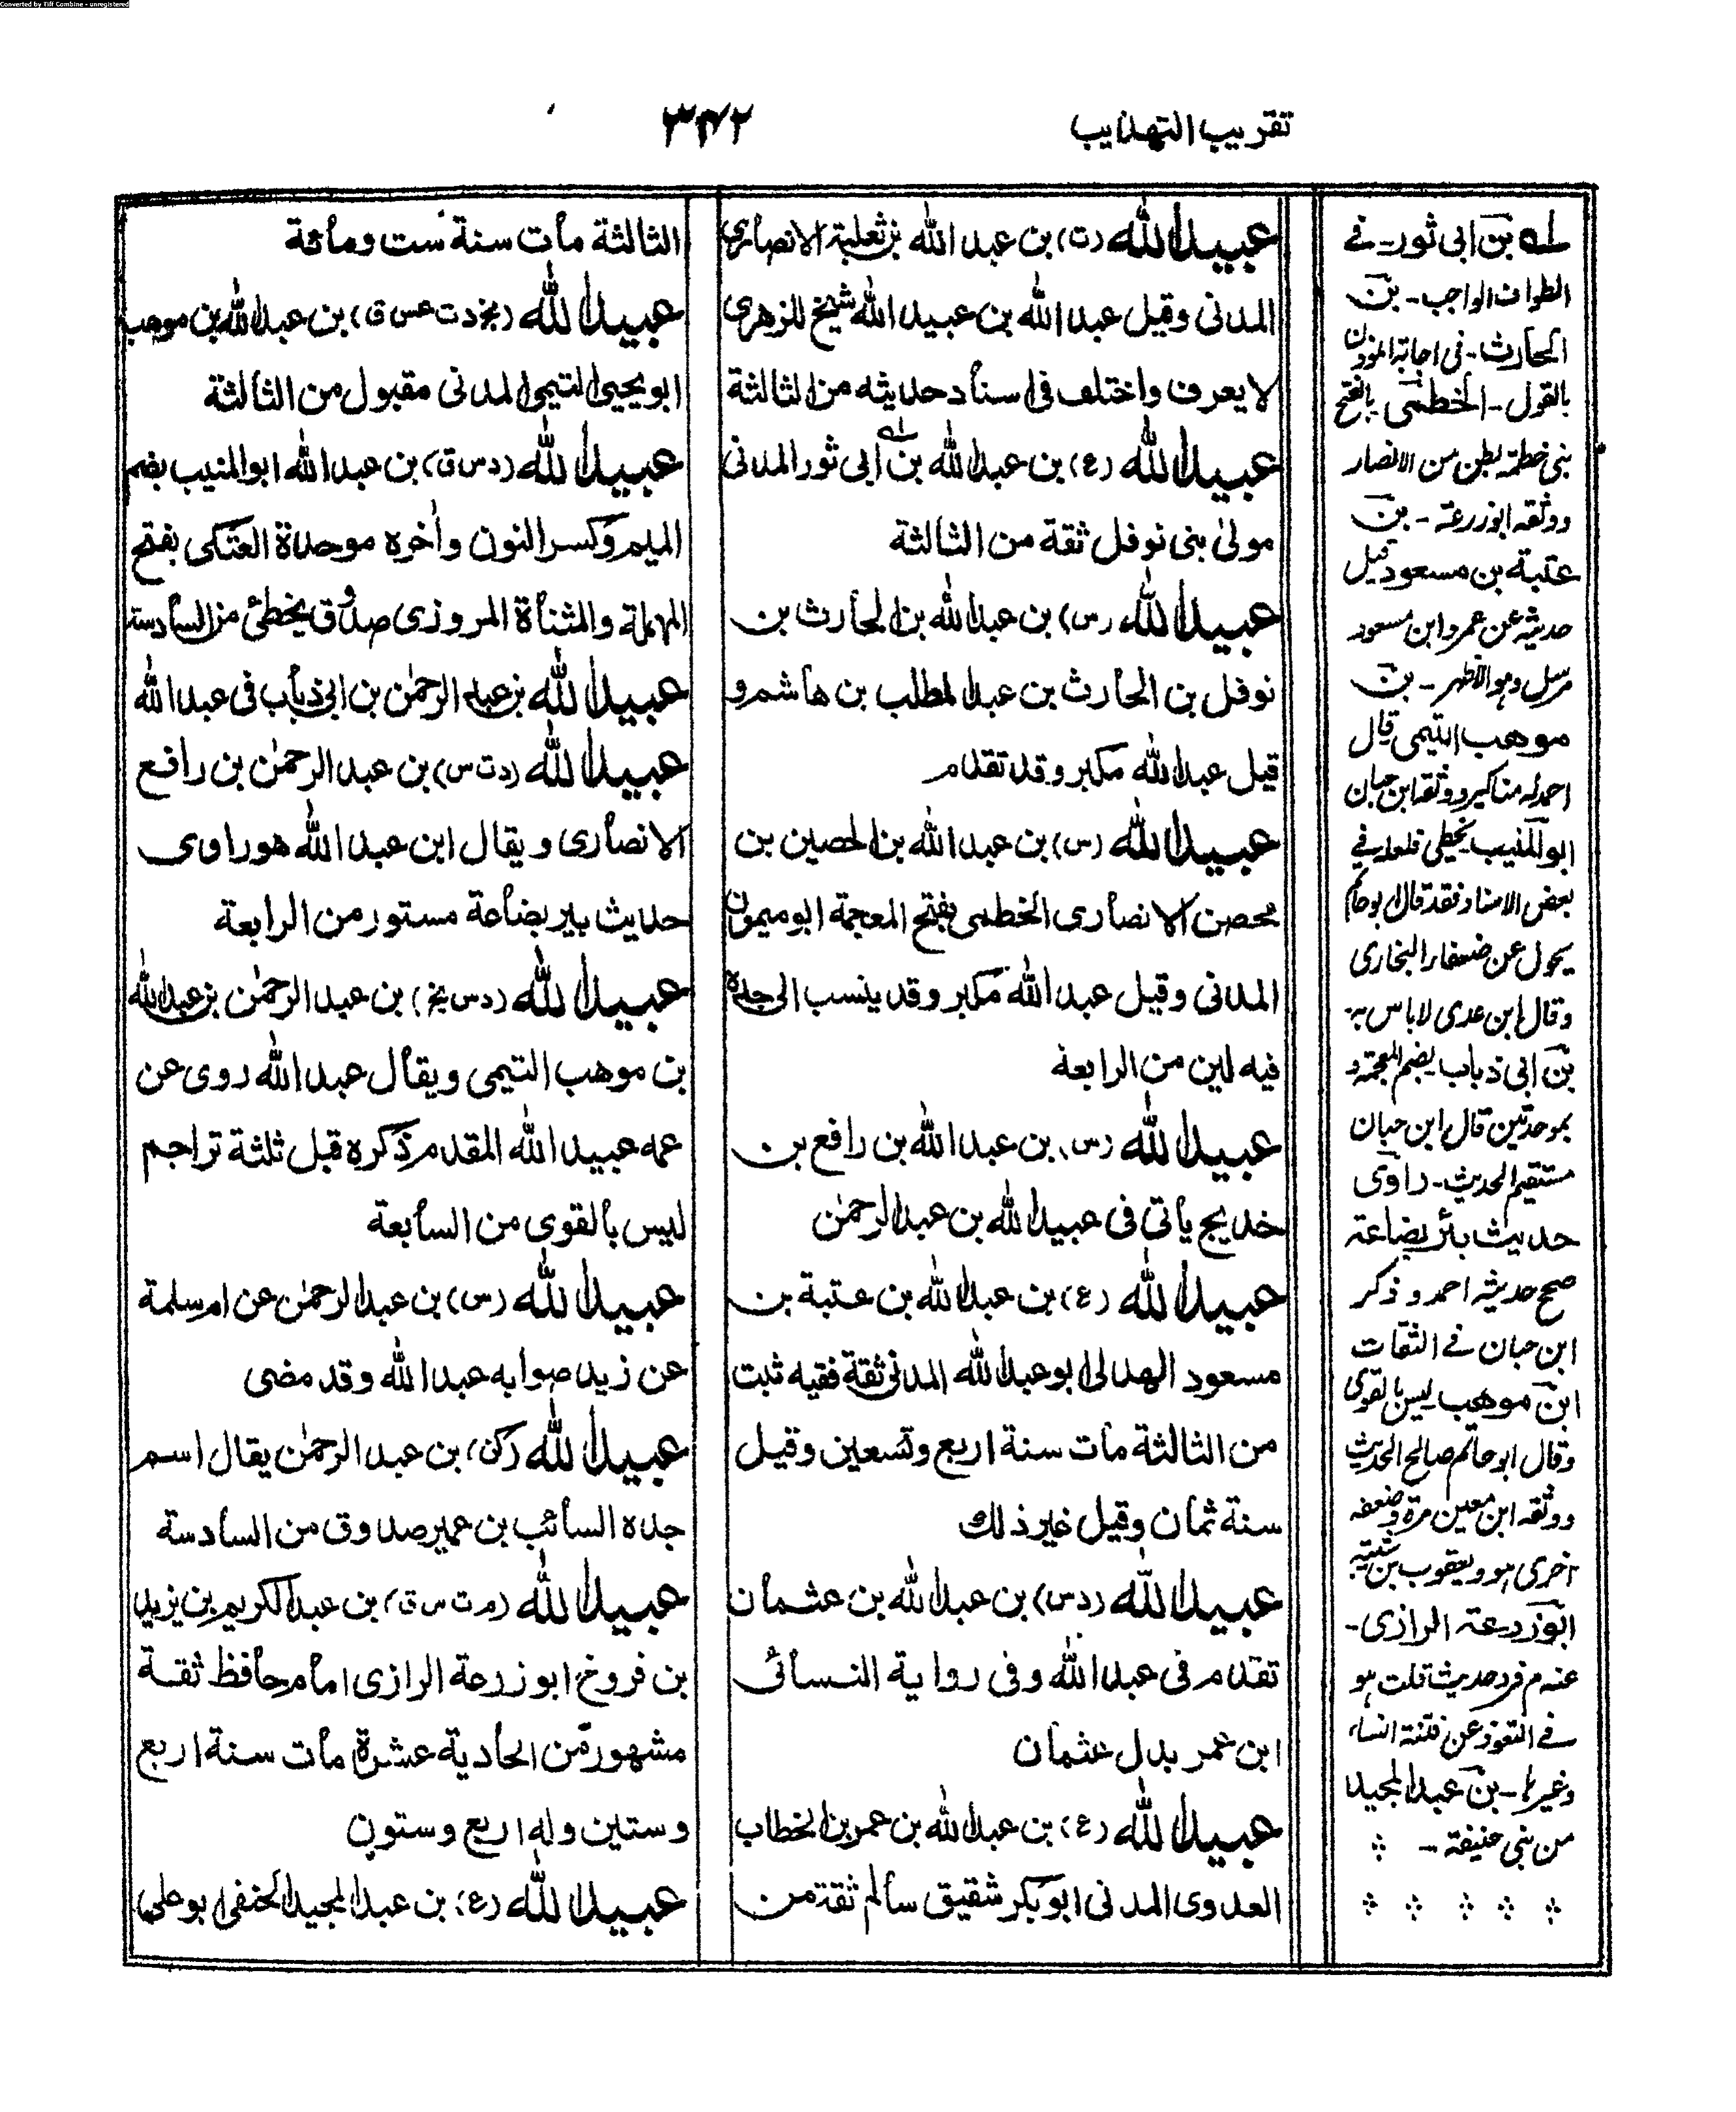 Converted by Tiff Combine - unregistered
تقريب التهذيب
٣٤٢
عبيد الله (ت) بن عبد الله بن ثعلبة الانصارى
المدنى وقيل عبد الله بن عبيد الله شيخ للزهرى
لا يعرف واختلف فى اسناد حديثه من الثالثة
عبيد الله (ع) بن عبد الله بن ابى ثور المدنى
مولى بنى نوفل ثقة من الثالثة
عبيد الله (س) بن عبد الله بن الحارث بن
نوفل بن الحارث بن عبد المطلب بن هاشم و
قيل عبد الله مكبر وقد تقدم
عبيد الله (س) بن عبد الله بن الحصين بن
محصن الانصارى الخطمى بفتح المعجمة ابو ميمون
المدنى وقيل عبد الله مكبر وقد ينسب الى جده
فيه لين من الرابعة
عبيد الله (س) بن عبد الله بن رافع بن
خديج يأتى فى عبيد الله بن عبد الرحمٰن
عبيد الله (ع) بن عبد الله بن عتبة بن
مسعود الهذلى ابو عبد الله المدنى ثقة فقيه ثبت
من الثالثة مات سنة اربع وتسعين وقيل
سنة ثمان وقيل غير ذلك
عبيد الله (دس) بن عبد الله بن عثمان
تقدم فى عبد الله وفى رواية النسائى
ابن عمر بدل عثمان
عبيد الله (ع) بن عبد الله بن عمر بن الخطاب
العدوى المدنى ابو بكر شقيق سالم ثقة من
الثالثة مات سنة ست ومائة
عبيد الله (بخ د ت عس ق) بن عبد الله بن موهب
ابو يحيى التيمى المدنى مقبول من الثالثة
عبيد الله (د س ق) بن عبد الله ابو المنيب بضم
الميم وكسر النون وأخره موحدة العتكى بفتح
المهملة والمثناة المروزى صدوق يخطئ من السادسة
عبيد الله بن عبد الرحمٰن بن ابى ذباب فى عبد الله
عبيد الله (د ت س) بن عبد الرحمٰن بن رافع
الانصارى ويقال ابن عبد الله هو راوى
حديث بير بضاعة مستور من الرابعة
عبيد الله (د س بخ) بن عبد الرحمٰن بن عبد الله
بن موهب التيمى ويقال عبد الله روى عن
عمه عبيد الله المقدم ذكره قبل ثلثة تراجم
ليس بالقوى من السابعة
عبيد الله (س) بن عبد الرحمٰن عن ام سلمة
عن زيد صوابه عبد الله وقد مضى
عبيد الله (كن) بن عبد الرحمٰن يقال اسم
جده السائب بن عمير صدوق من السادسة
عبيد الله (م ت س ق) بن عبد الكريم بن يزيد
بن فروخ ابو زرعة الرازى امام حافظ ثقة
مشهور من الحادية عشرة مات سنة اربع
وستين وله اربع وستون
عبيد الله (ع) بن عبد المجيد الحنفى ابو على
له بن ابى ثور - فے
الطواف الواجب - بن
الحارث - فى اجابة المؤذن
بالقول - الخطمى بالفتح
بنى خطمة بطن من الانصار
ووثقه ابو زرعة - بن
عتبة بن مسعود قيل
حديثه عن عمر وابن مسعود
مرسل وهو الاظهر - بن
موهب التيمى قال
احمد له مناكير ووثقه ابن حبان
ابو المنيب يخطى فلعله فے
بعض الاسناد فقد قال ابو حاتم
يحول عن ضعفاء البخارى
وقال ابن عدى لا باس به
بن ابى ذباب بضم المعجمة و
بموحدتين قال ابن حبان
مستقيم الحديث - راوى
حديث بئر بضاعة
صحح حديثه احمد و ذكر
ابن حبان فے الثقات
ابن موهب ليس بالقوى
وقال ابو حاتم صالح الحديث
ووثقه ابن معين مرة وضعفه
اخرى هو ويعقوب بن شيبة
ابو زرعة الرازى -
عنه م فرد حديث قلت هو
فے التعوذ عن فتنة النساء
وغيرها - بن عبد المجيد
من بنى حنيفة -